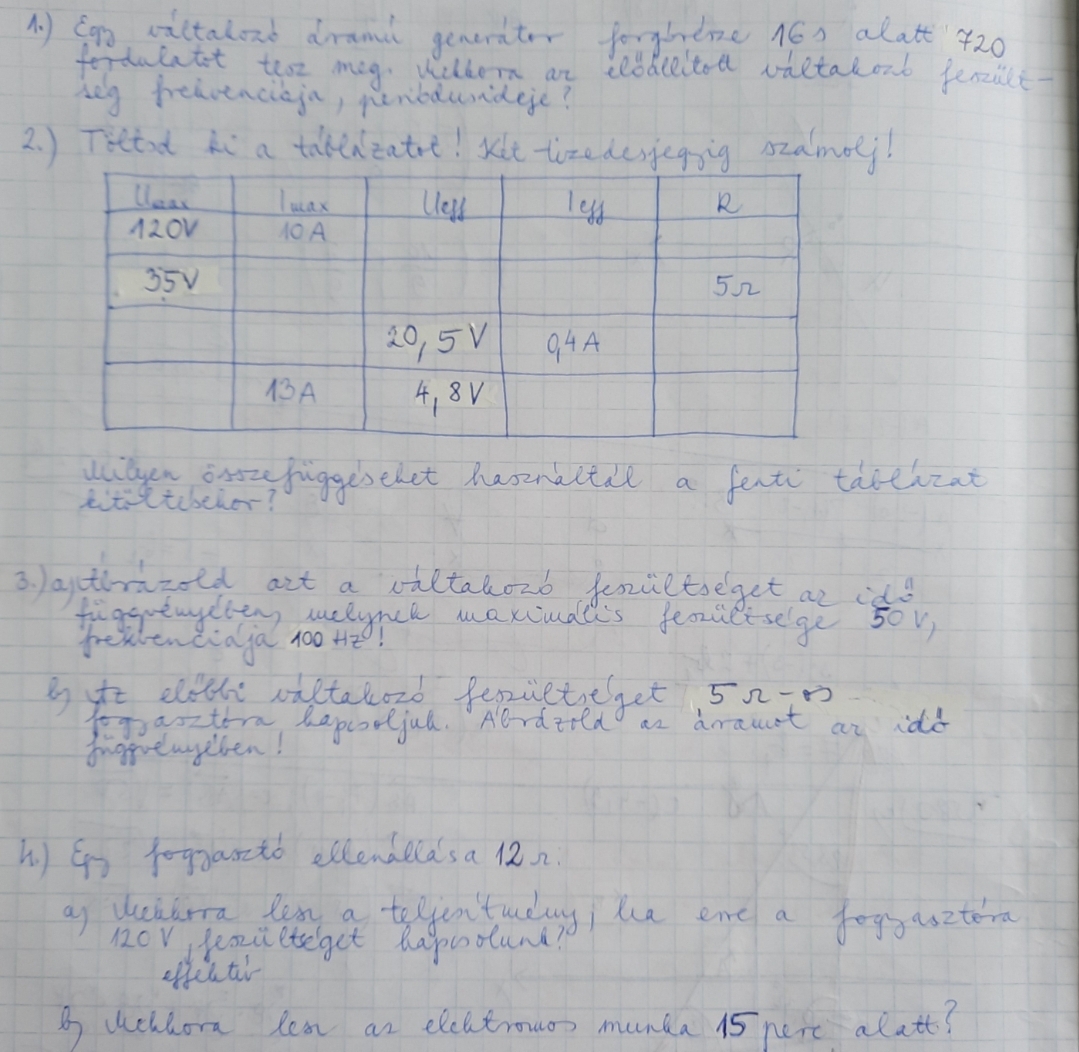 1.) Egy váltakozó áramú generátor forgórésze 16 s alatt 720
fordulatot tesz meg. Mekkora az előállított váltakozó feszült-
ség frekvenciája, periódusideje?
2.) Töltsd ki a táblázatot! Két tizedesjegyig számolj!
Umax Imax Ueff Ieff R
120V 10A
35V 5Ω
20,5V 0,4A
13A 4,8V
Milyen összefüggéseket használtál a fenti táblázat
kitöltésekor?
3.) a) Ábrázold azt a váltakozó feszültséget az idő
függvényében, melynek maximális feszültsége 50V,
frekvenciája 100 Hz!
b) Az előbbi váltakozó feszültséget 5Ω-os
fogyasztóra kapcsoljuk. Ábrázold az áramot az idő
függvényében!
4.) Egy fogyasztó ellenállása 12Ω.
a) Mekkora lesz a teljesítmény, ha erre a fogyasztóra
120V feszültséget kapcsolunk?
effektív
b) Mekkora lesz az elektromos munka 15 perc alatt?